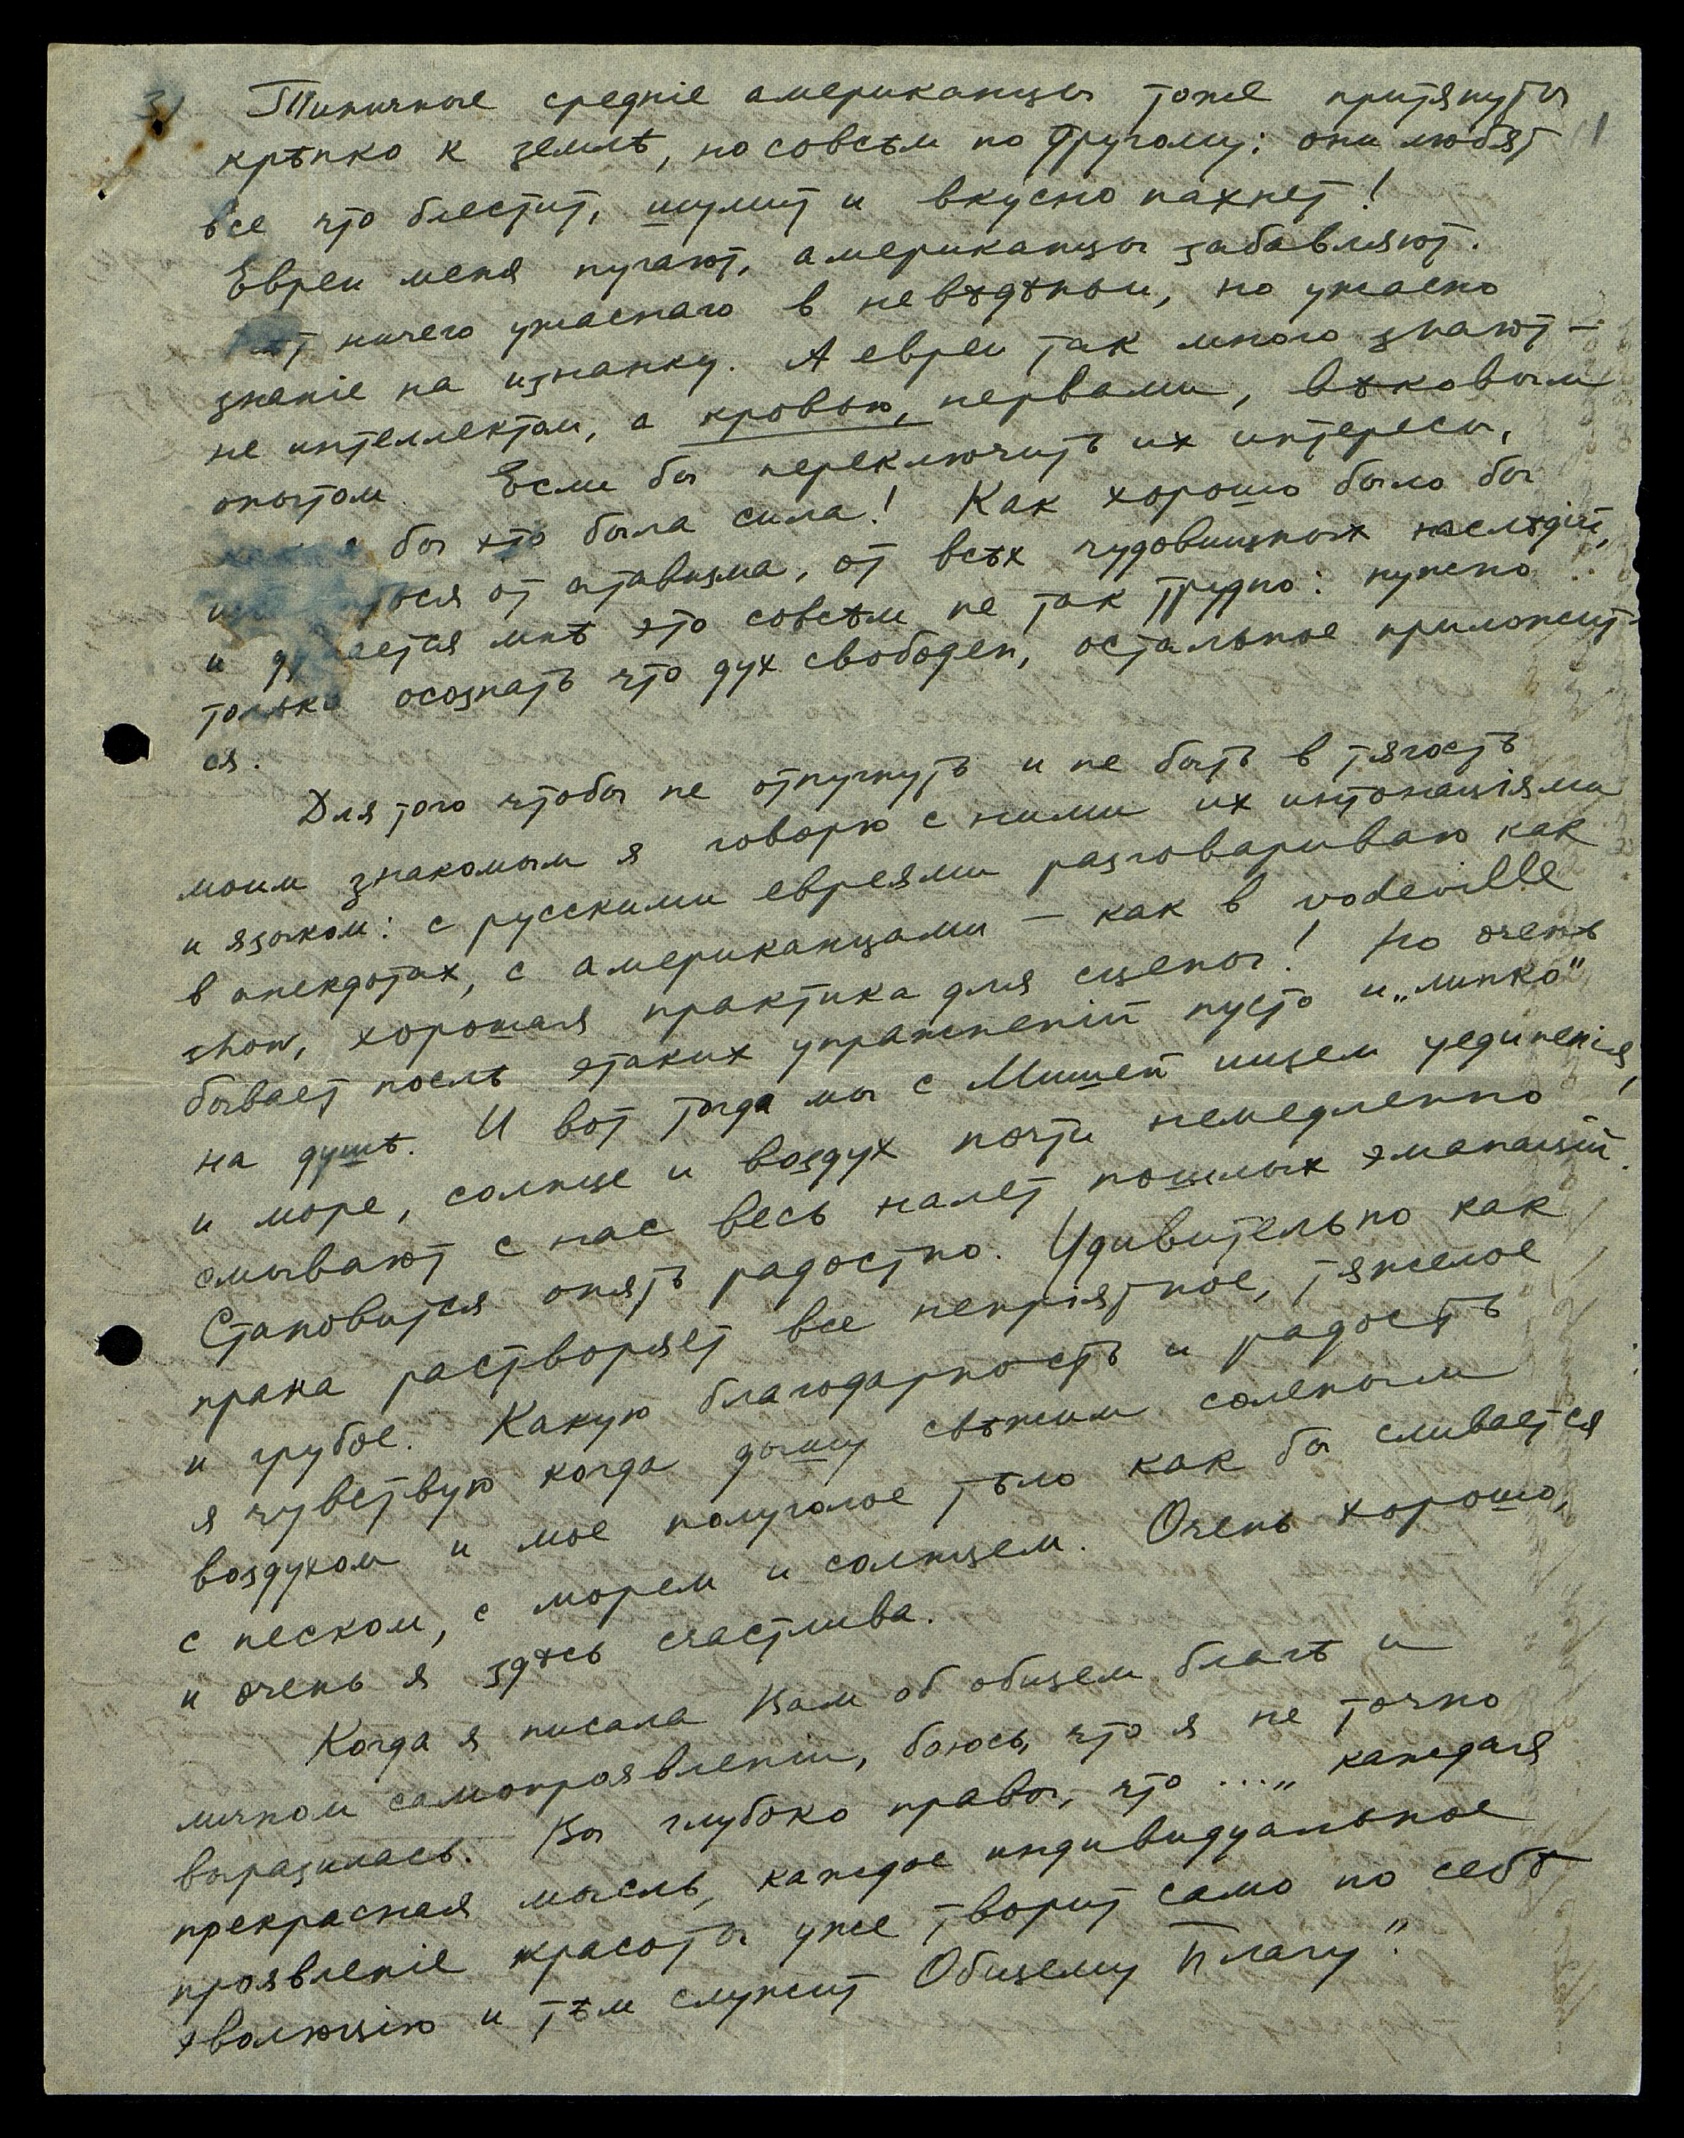 3)
Типичные среднie американцы тоже притянуты
крѣпко к землѣ, но совсѣм по другому: они любят
все что блестит, шумит и вкусно пахнет!
Евреи меня пугают, американцы забавляют.
ничего ужаснаго в невѣдѣньи, но ужасно
знанiе на изнанку. А евреи так много знают —
не интеллектом, а кровью, нервами, вѣковым
опытом. Если бы переключить их интересы,
бы это была сила! Как хорошо было бы
от атавизма, от всѣх чудовищных наслѣдiй,
и думается мнѣ это совсѣм не так трудно: нужно
только осознать что дух свободен, остальное приложит-
ся.
Для того чтобы не отпугнуть и не быть в тягость
моим знакомым я говорю с ними их интонацiями
и языком: с русскими евреями разговариваю как
в анекдотах, с американцами — как в vodeville
show, хорошая практика для сцены! Но очень
бывает послѣ этаких упражненiй пусто и „липко"
на душѣ. И вот тогда мы с Мишей ищем уединенiя,
и море, солнце и воздух почти немедленно
смывают с нас весь налет пошлых эманацiй.
Становится опять радостно. Удивительно как
прана растворяет все непрiятное, тяжелое
и грубое. Какую благодарность и радость
я чувствую когда дышу свѣжим соленым
воздухом и мое полуголое тѣло как бы сливается
с песком, с морем и солнцем. Очень хорошо,
и очень я здѣсь счастлива.
Когда я писала Вам об общем благѣ и
личном самопроявленiи, боюсь, что я не точно
выразилась. Вы глубоко правы, что ... „каждая
прекрасная мысль, каждое индивидуальное
проявленiе красоты уже творит само по себѣ
эволюцiю и тѣм служит Общему Плану".